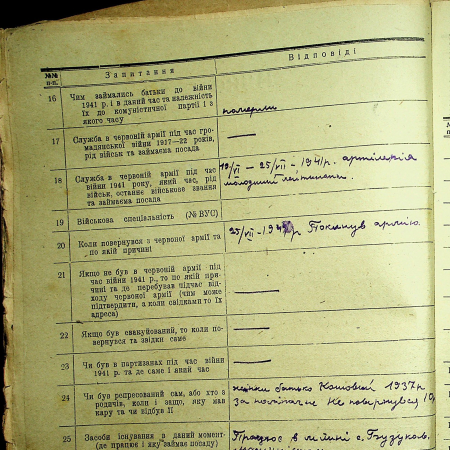 №№ п-п.
Запитання
Відповіді
16
Чим займались батьки до війни
1941 р. і в даний час та належність
їх до комуністичної партії і з
якого часу
померли
17
Служба в червоній армії під час гро-
мадянської війни 1917—22 років,
рід військ та займаєма посада
—
18
Служба в червоній армії під час
війни 1941 року, який час, рід
військ, останнє військове звання
та займаєма посада
/VI — 25/VII — 1941 р. артілерія
молодший лейтинант.
19
Військова спеціальність (№ ВУС)
20
Коли повернувся з червоної армії та
по якій причині
25/VII — р Покинув армію.
21
Якщо не був в червоній армії під
час війни 1941 р., то по якій при-
чині та де перебував підчас від-
ходу червоної армії (чим може
підтвердити, а коли свідками то їх
адреса)
—
22
Якщо був евакуйований, то коли по-
вернувся та звідки саме
—
23
Чи був в партизанах під час війни
1941 р. та де саме і який час
—
24
Чи був репресований сам, або хто з
родичів, коли і защо, яку мав
кару та чи відбув її
жінки батько 1937 р
за Не повернувся
25
Засоби існування в даний момент
(де працює і яку займає посаду)
Працює в с.